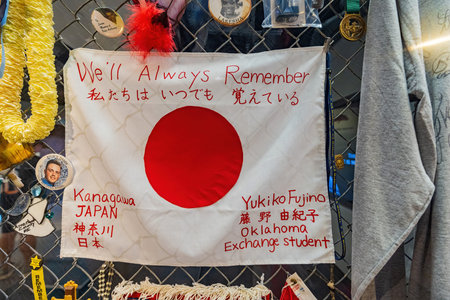 We'll Always Remember
私たちは いつでも 覚えている
Kanagawa
JAPAN
神奈川
日本
Yukiko Fujino
藤野 由紀子
Oklahoma
Exchange student